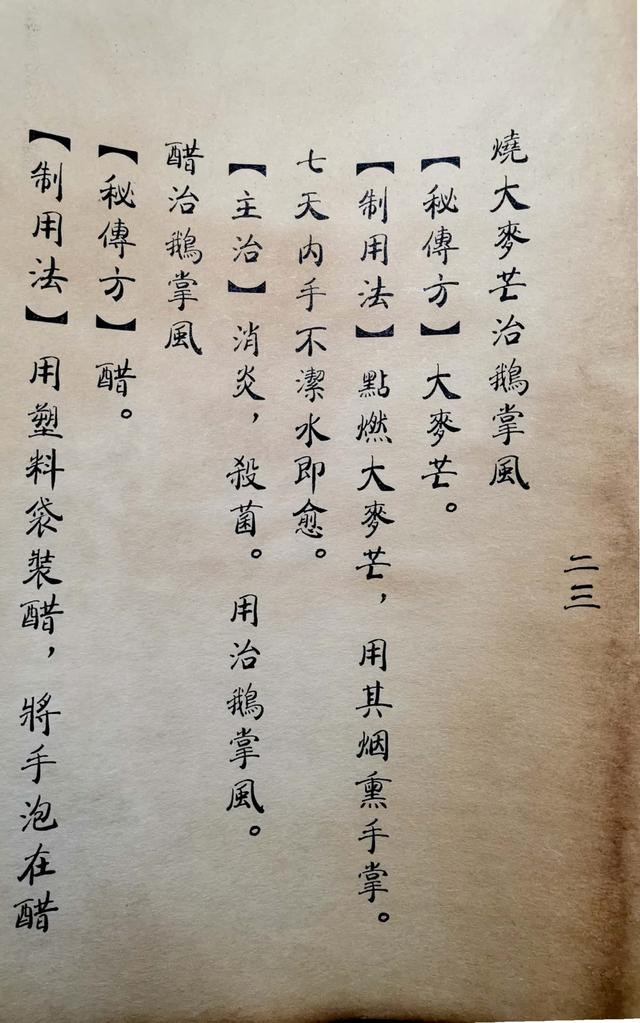 二三
燒大麥芒治鵝掌風
【秘傳方】大麥芒。
【制用法】點燃大麥芒，用其烟熏手掌。
七天内手不潔水即愈。
【主治】消炎，殺菌。用治鵝掌風。
醋治鵝掌風
【秘傳方】醋。
【制用法】用塑料袋裝醋，將手泡在醋